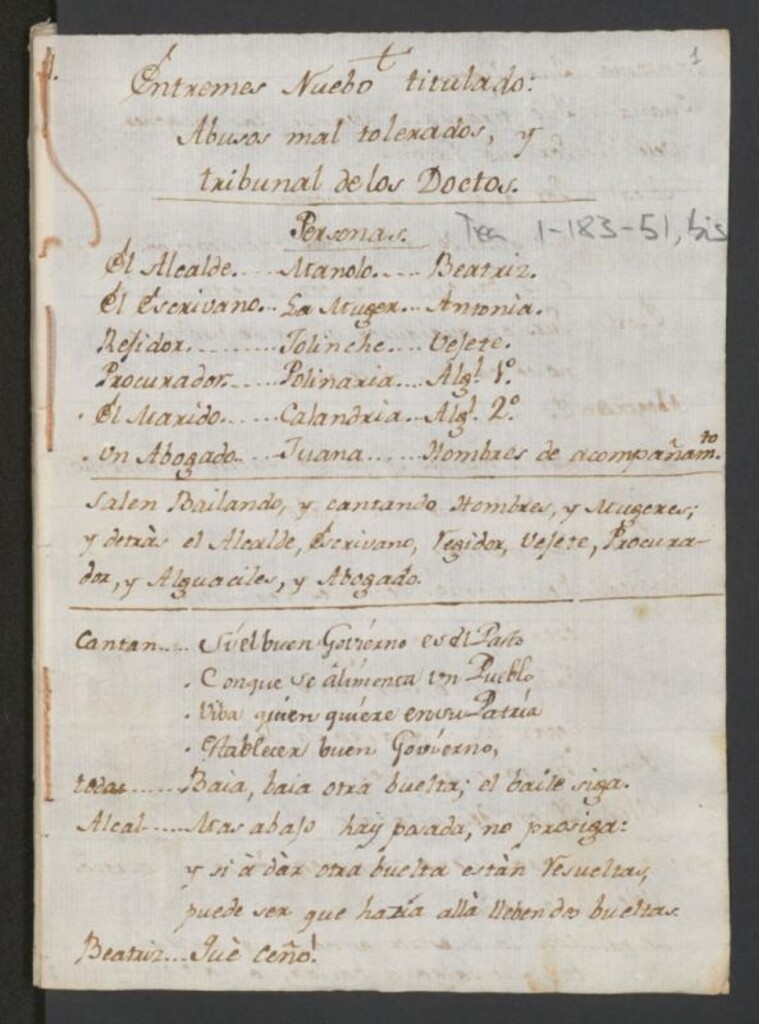 1
Entremes Nuebo titulado:
Abusos mal tolerados, y
tribunal de los Doctos.
Personas. Tea 1-183-51, bis
El Alcalde.... Manolo..... Beatriz.
El Escrivano... La Muger... Antonia.
Rejidor......... Tolinche.... Vejete.
Procurador..... Polinaria.... Algl. 1º.
. El Marido...... Calandria... Algl. 2º.
. Un Abogado.... Juana...... Hombres de acompañamto.
Salen Bailando, y cantando Hombres, y Mugeres;
y detràs el Alcalde, Escrivano, Regidor, Vejete, Procura-
dor, y Alguaciles, y Abogado.
Cantan.... Si el buen Govierno es el Pasto
. Conque se alimenta un Pueblo
. Viba quien quiere en su Patria
. Establecer buen Govierno,
todas...... Baia, baia otra buelta; el baile siga.
Alcal..... Mas abajo hay posada, no prosiga:
y si à dàr otra buelta estàn resueltas,
puede ser que hazia allà lleben dos bueltas.
Beatriz... Què ceño!